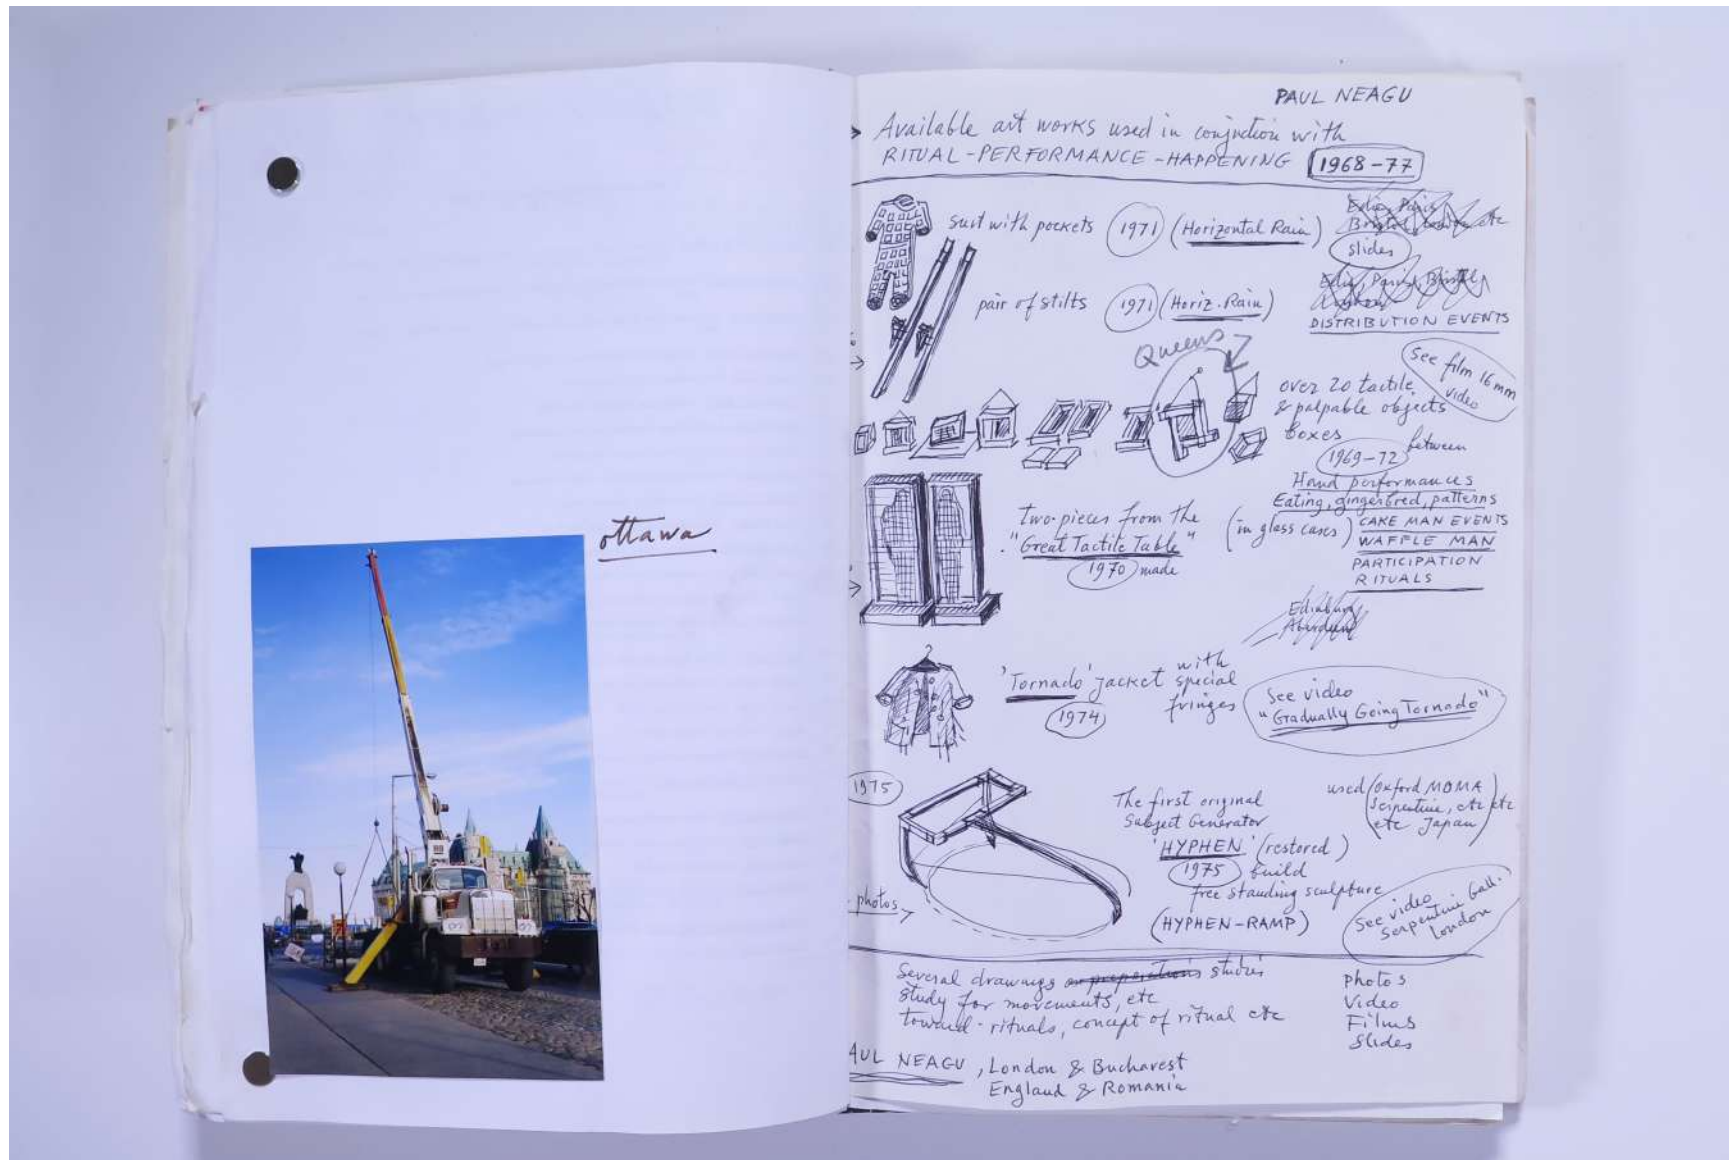 ottawa
PAUL NEAGU
Available art works used in conjuction with
RITUAL-PERFORMANCE-HAPPENING 1968-77
suit with pockets 1971 (Horizontal Rain)
Edin, Paris
Bristol, London etc
slides
pair of stilts 1971 (Horiz. Rain)
Edin, Paris, Bristol
DISTRIBUTION EVENTS
Queens
See film 16mm
video
over 20 tactile
& palpable objects
boxes
1969-72 between
Hand performances
Eating, gingerbred, patterns
CAKE MAN EVENTS
WAFFLE MAN
PARTICIPATION
RITUALS
two-pieces from the
"Great Tactile Table"
1970 made
(in glass cases)
Edinburg
Aberdeen
'Tornado' jacket with special fringes
1974
See video
"Gradually Going Tornado"
1975
The first original
Subject Generator
'HYPHEN' (restored)
1975 build
free standing sculpture
(HYPHEN-RAMP)
used (Oxford MOMA
Serpentine, etc etc
etc Japan)
photos
See video
Serpentine Gall.
London
Several drawings or preparations studies
study for movements, etc
toward rituals, concept of ritual etc
Photos
Video
Films
Slides
AUL NEAGU, London & Bucharest
England & Romania